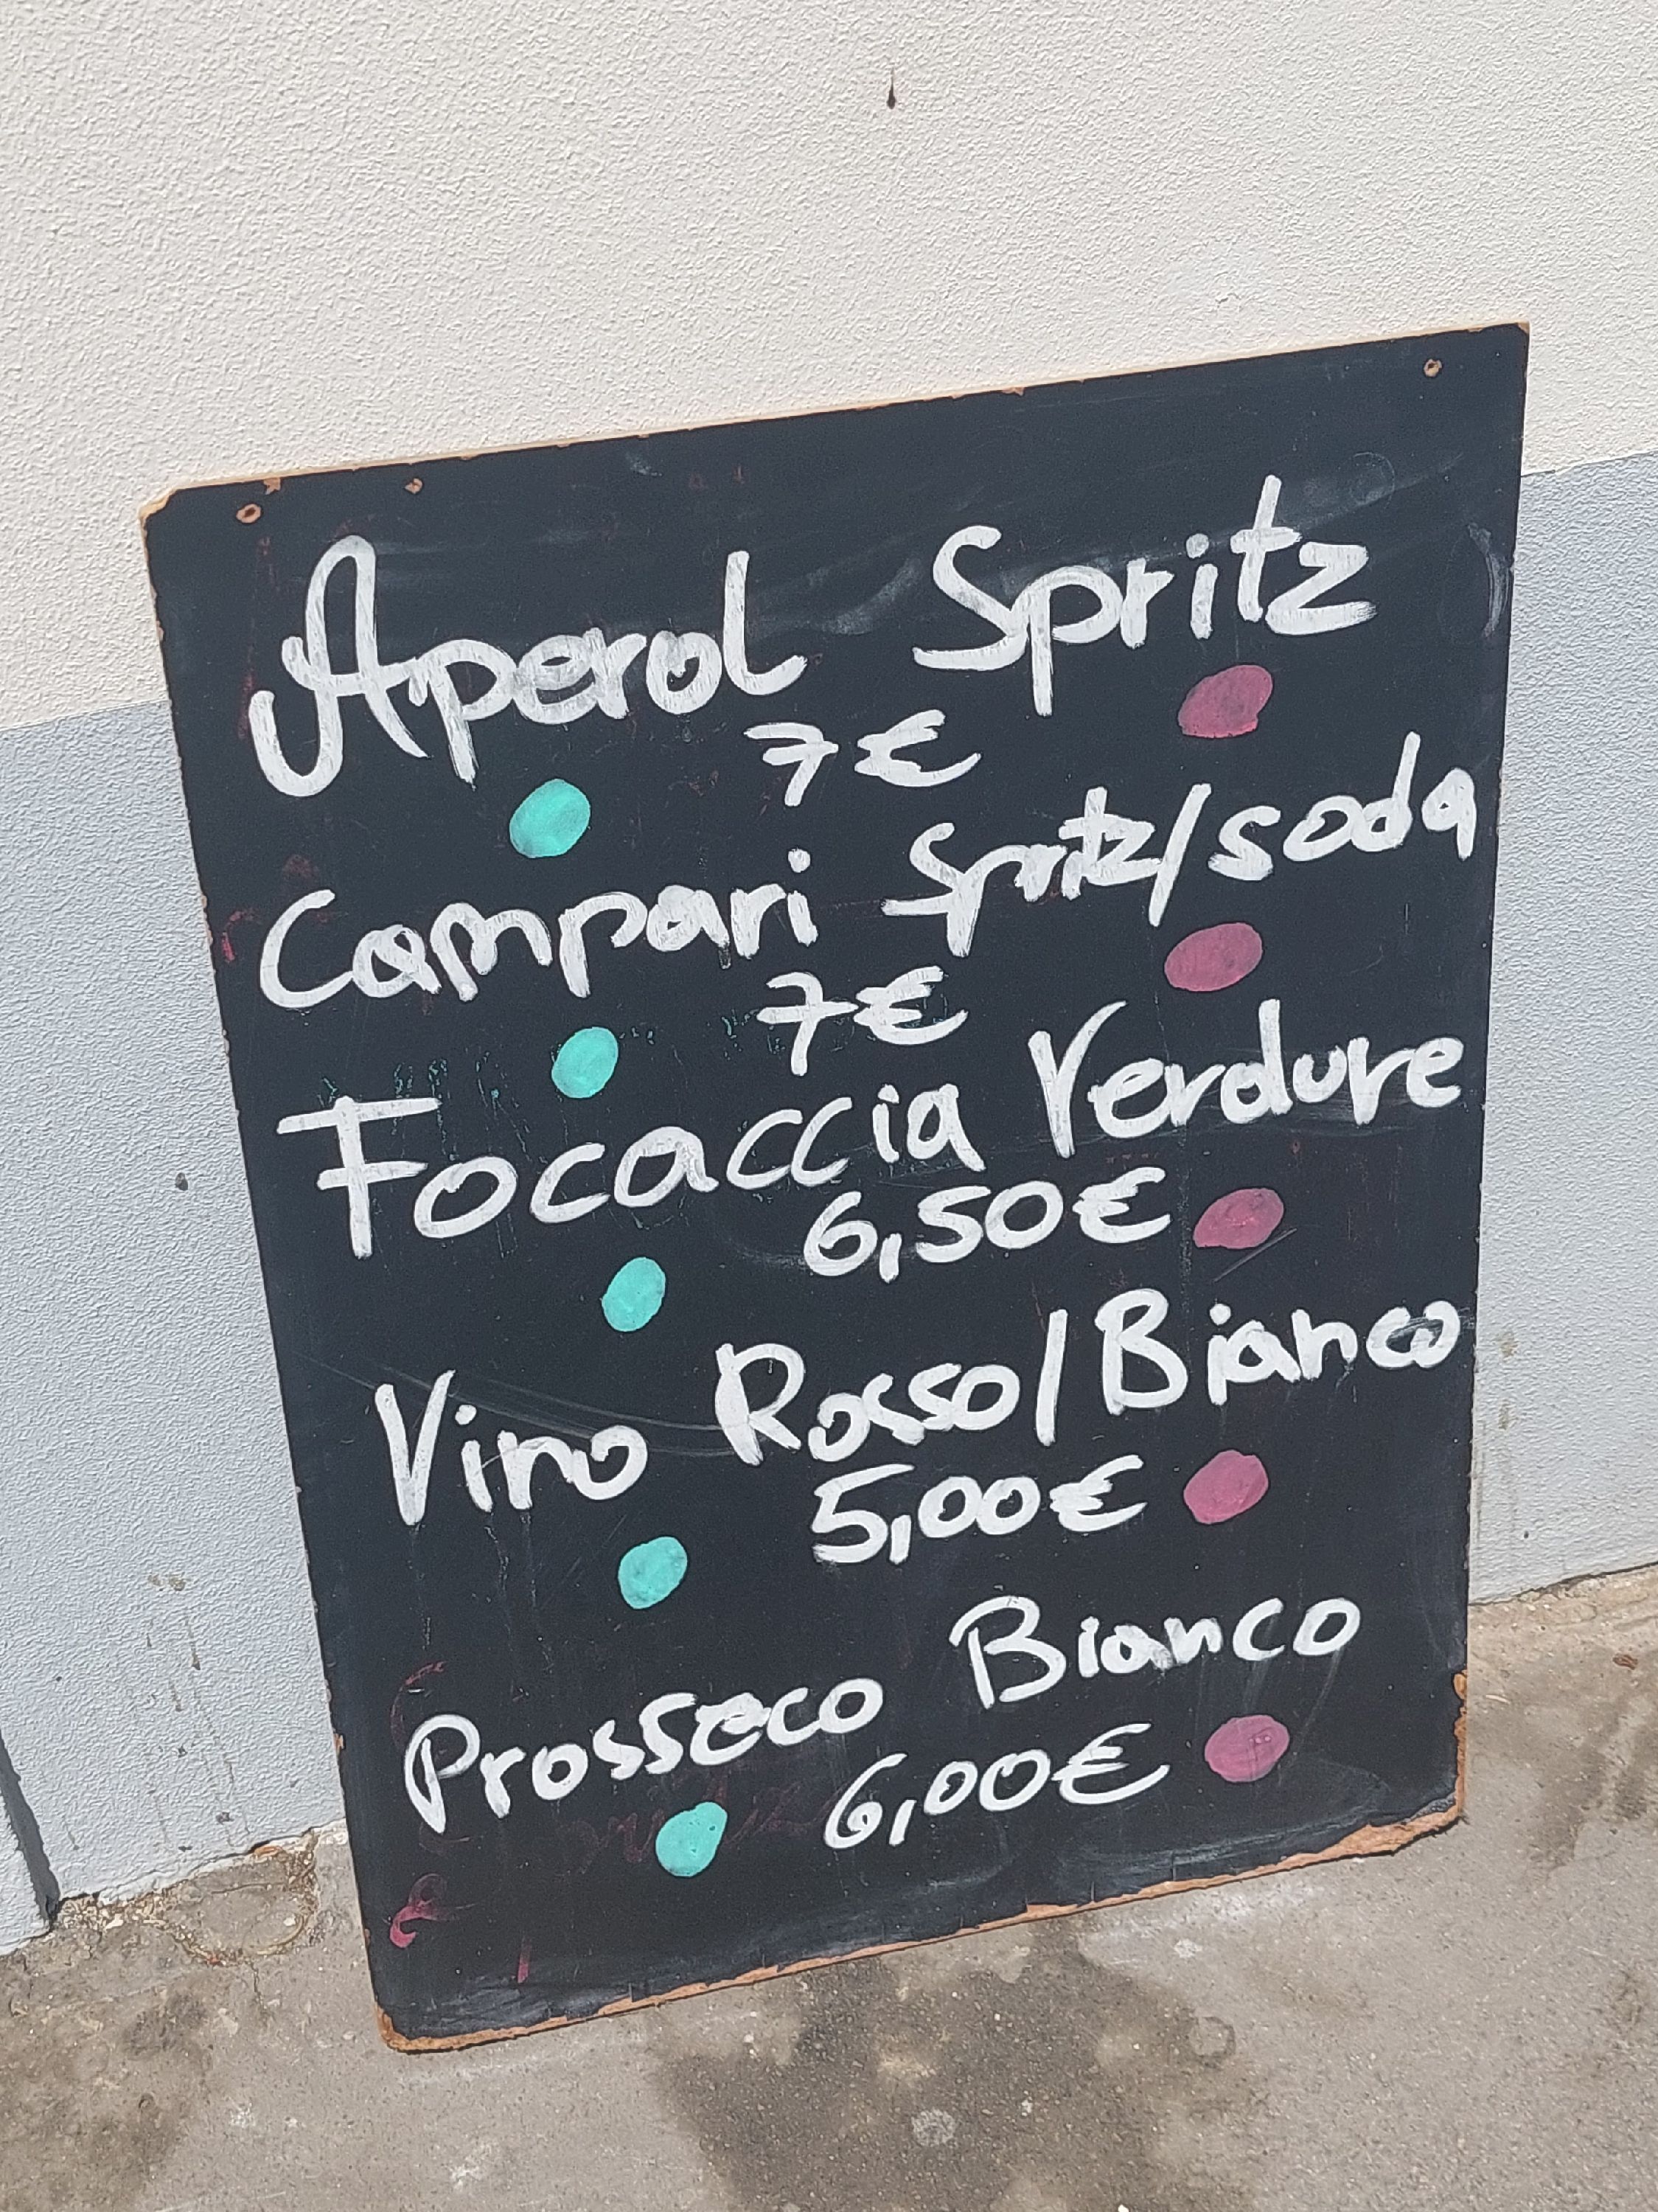 Aperol Spritz
7€
Campari Spritz/soda
7€
Focaccia Verdure
6,50€
Vino Rosso/Bianco
5,00€
Prosseco Bianco
6,00€